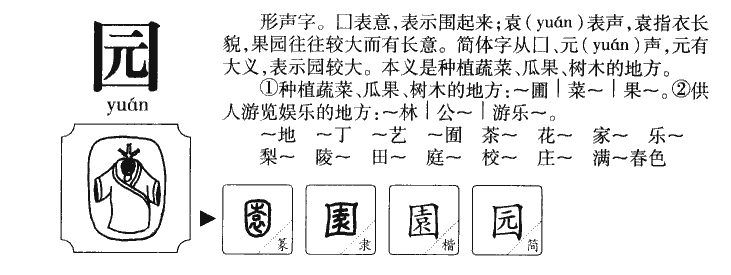 园
yuán
形声字。囗表意，表示围起来；袁(yuán)表声，袁指衣长
貌，果园往往较大而有长意。简体字从囗、元(yuán)声，元有
大义，表示园较大。本义是种植蔬菜、瓜果、树木的地方。
①种植蔬菜、瓜果、树木的地方：～圃｜菜～｜果～。②供
人游览娱乐的地方：～林｜公～｜游乐～。
～地 ～丁 ～艺 ～囿 茶～ 花～ 家～ 乐～
梨～ 陵～ 田～ 庭～ 校～ 庄～ 满～春色
園 篆
園 隶
園 楷
园 简